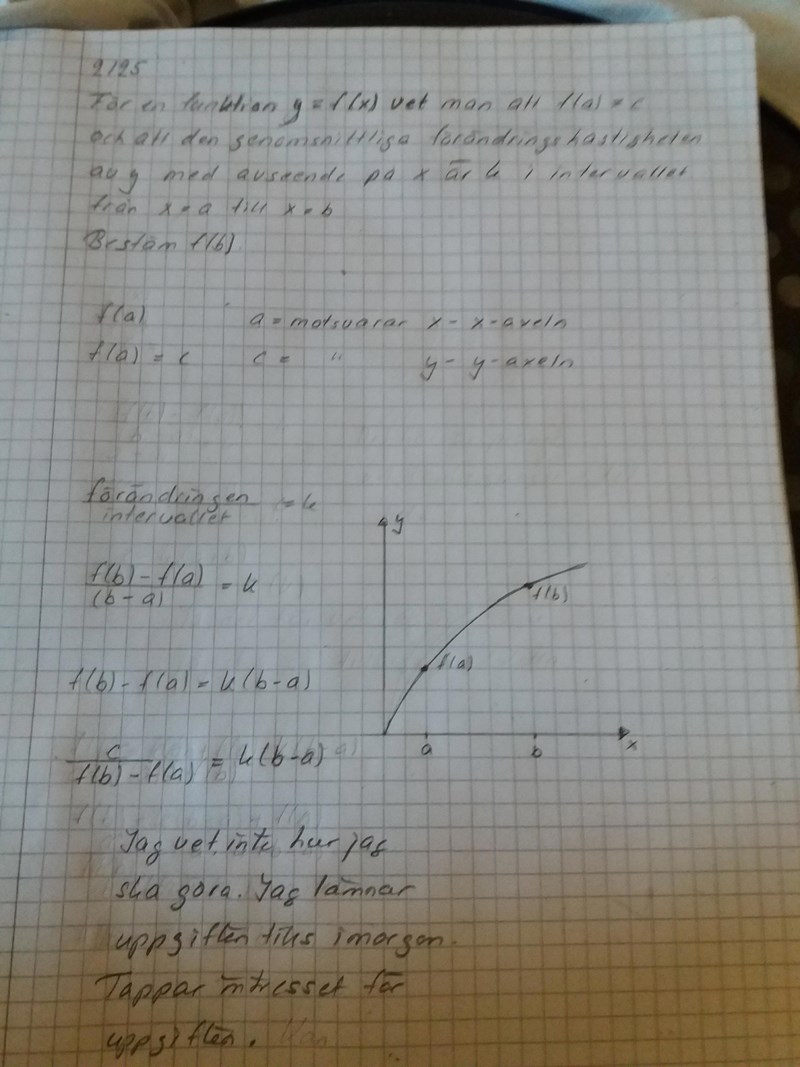 2125
För en funktion y = f(x) vet man att f(a) = c
och att den genomsnittliga förändringshastigheten
av y med avseende på x är k i intervallet
från x = a till x = b
Bestäm f(b)
f(a) a = motsvarar x - x-axeln
f(a) = c c = " y - y-axeln
förändringen / intervallet = k
(f(b) - f(a)) / (b-a) = k
f(b) - f(a) = k(b-a)
c / (f(b) - f(a)) = k(b-a)
y
f(b)
f(a)
a b x
Jag vet inte hur jag
ska göra. Jag lämnar
uppgiften tills imorgon.
Tappar intresset för
uppgiften.